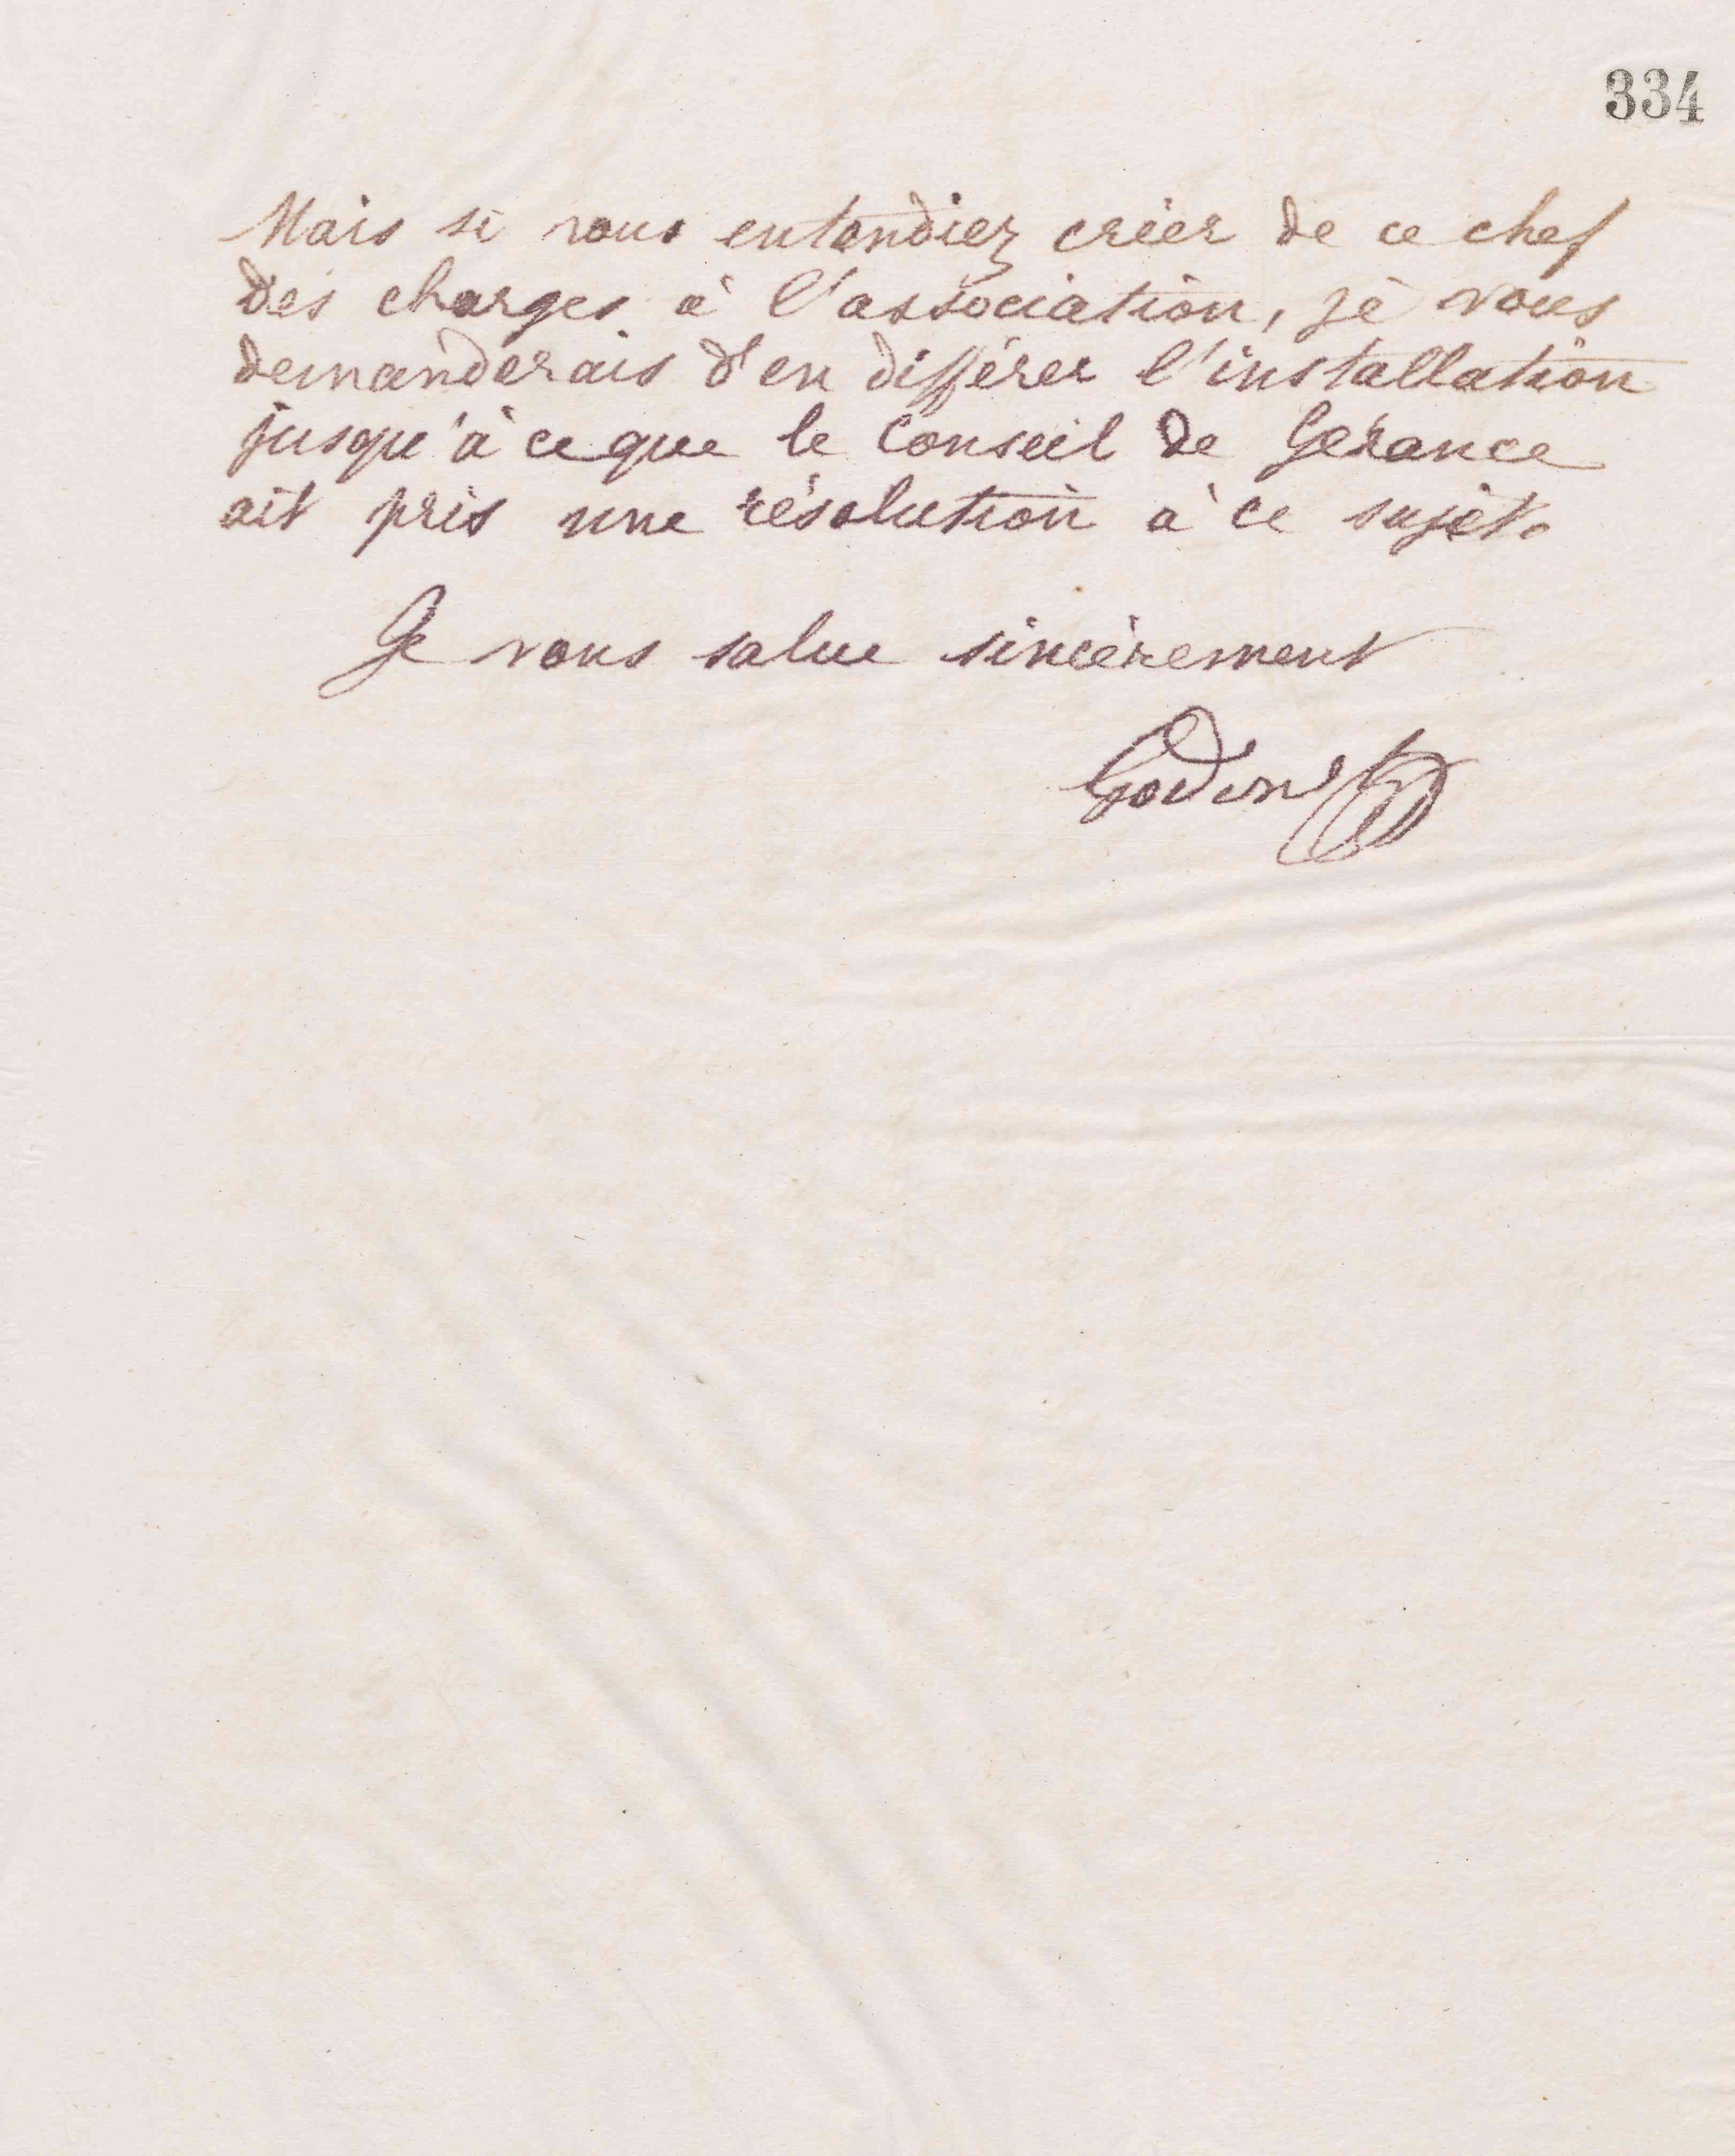 334
Mais si vous entendiez créer de ce chef
des charges à l'association, je vous
demanderais d'en différer l'installation
jusqu'à ce que le Conseil de Gérance
ait pris une résolution à ce sujet.
Je vous salue sincèrement
Godin